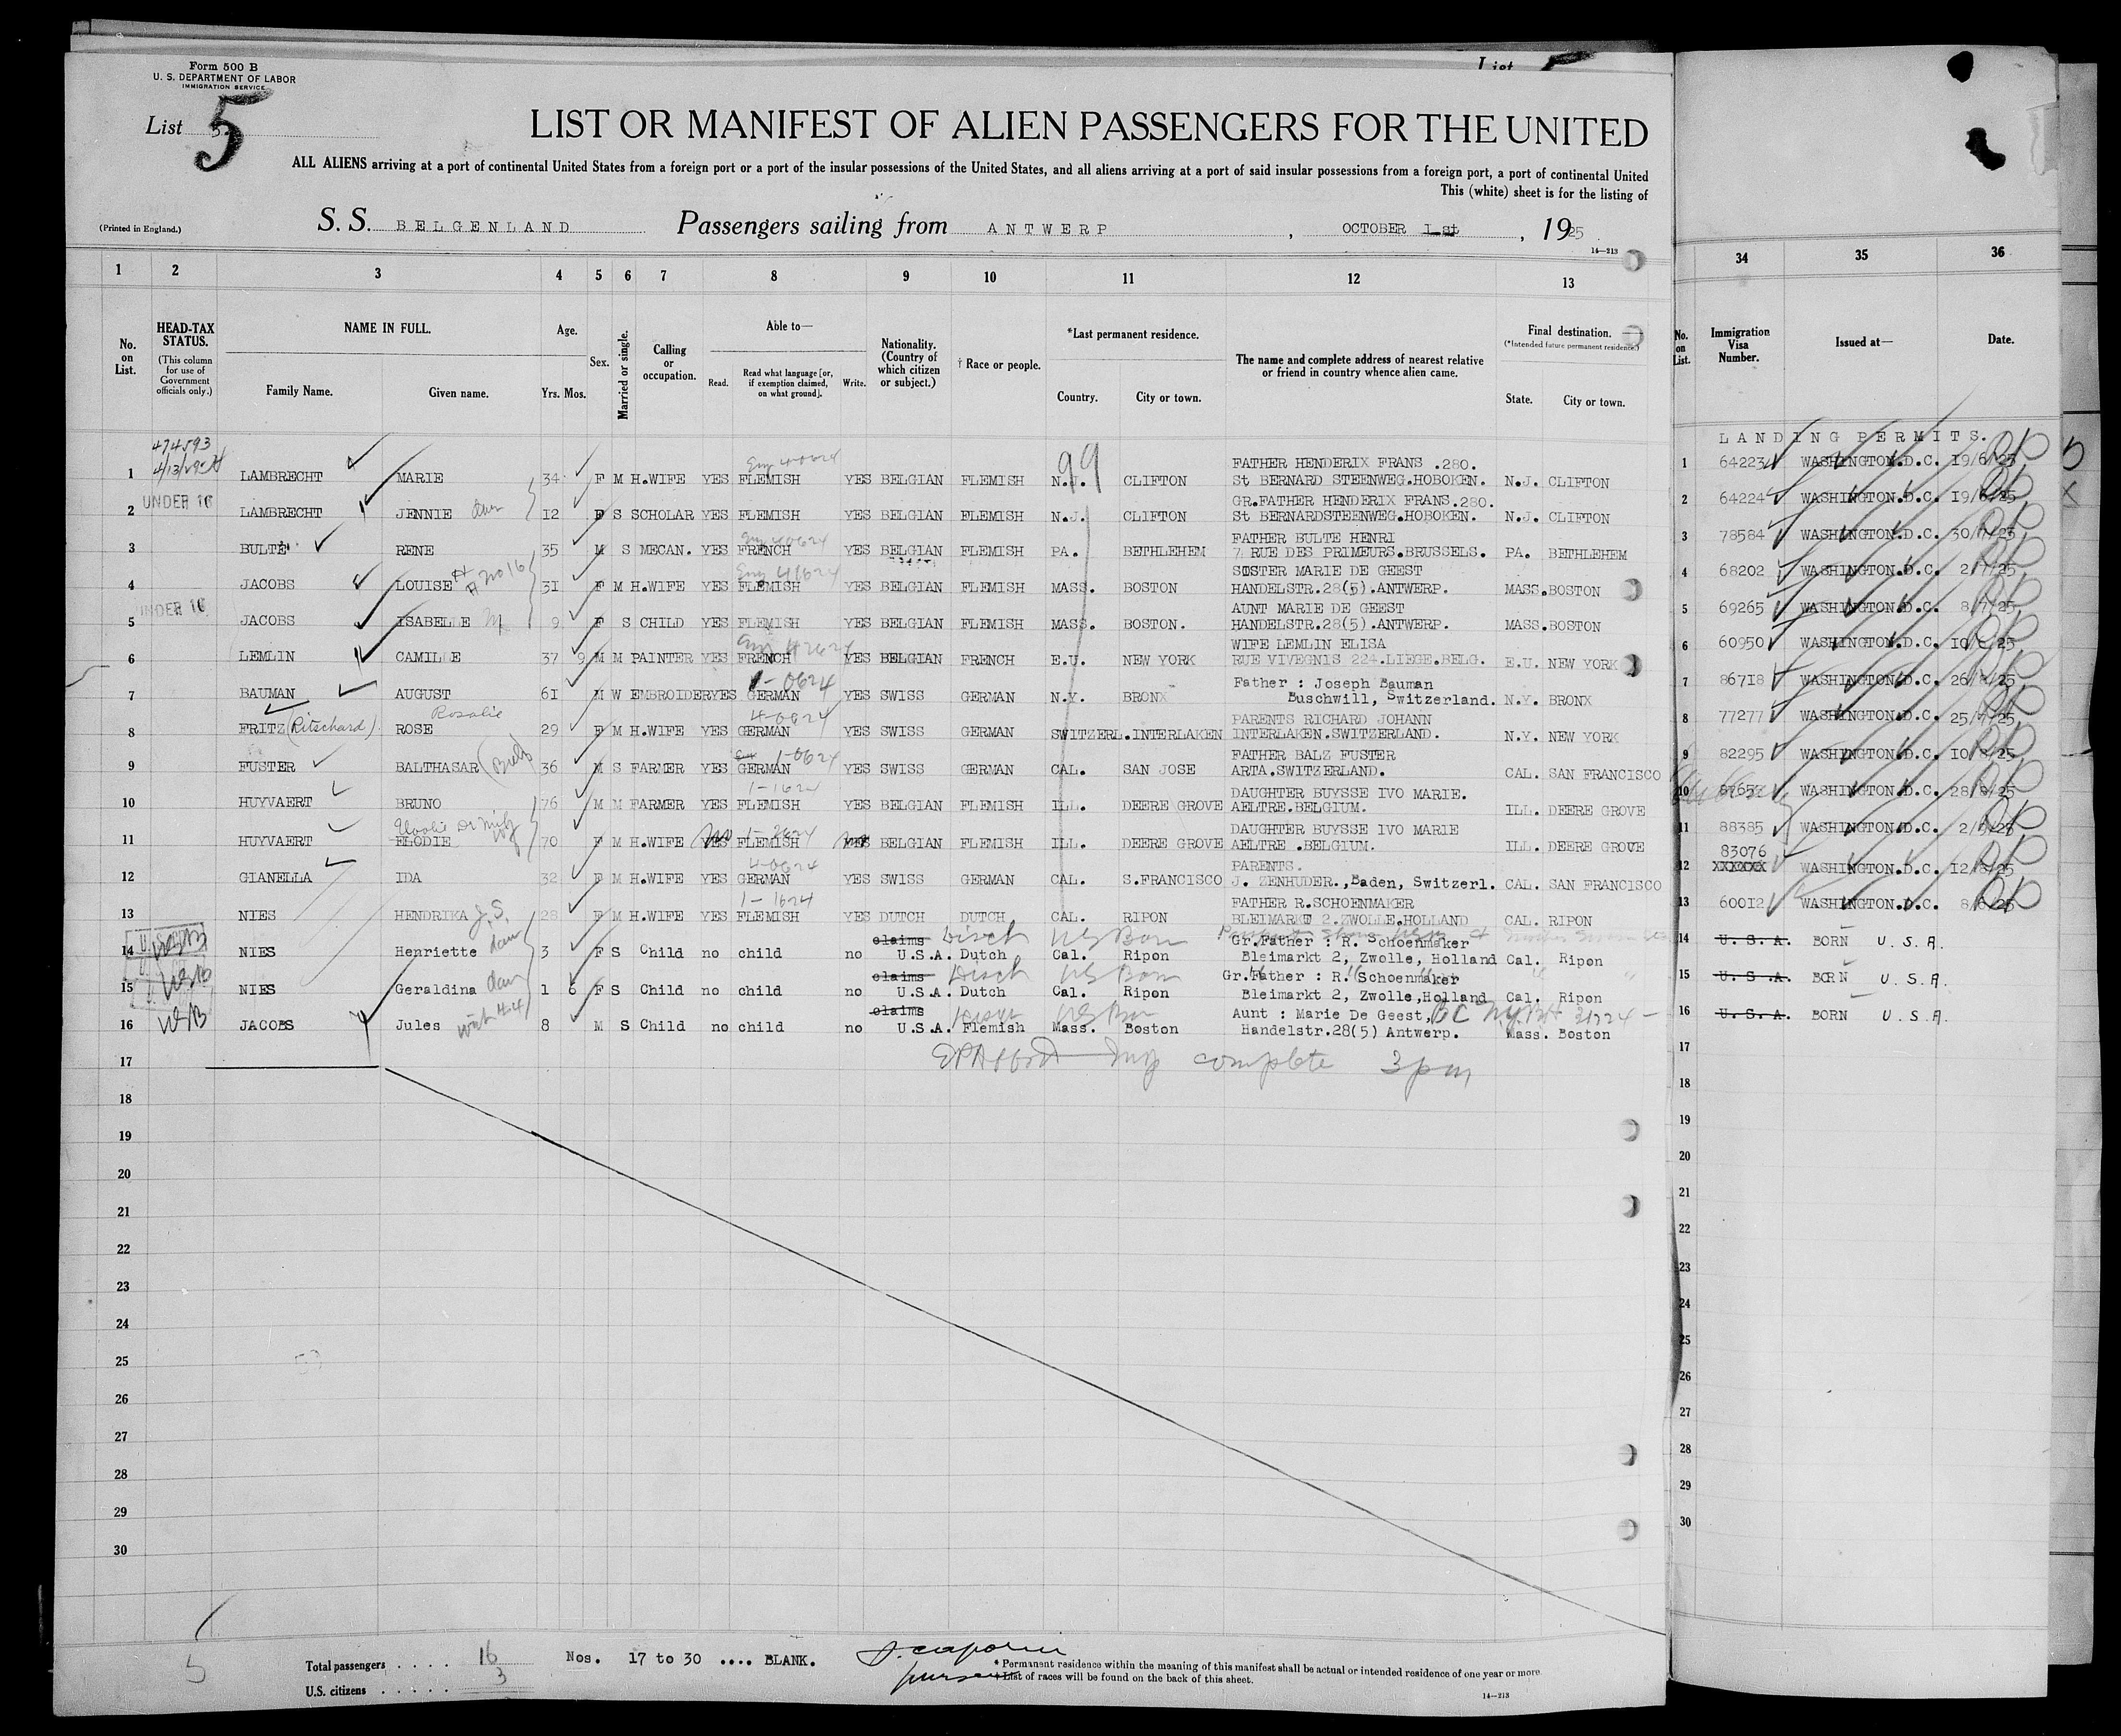 List
Form 500 B
U. S. DEPARTMENT OF LABOR
IMMIGRATION SERVICE
List 5
LIST OR MANIFEST OF ALIEN PASSENGERS FOR THE UNITED
ALL ALIENS arriving at a port of continental United States from a foreign port or a port of the insular possessions of the United States, and all aliens arriving at a port of said insular possessions from a foreign port, a port of continental United
This (white) sheet is for the listing of
(Printed in England.) S. S. BELGENLAND Passengers sailing from ANTWERP , OCTOBER 1st , 1925
14—213
1 2 3 4 5 6 7 8 9 10 11 12 13 34 35 36
No. on List. HEAD-TAX STATUS. (This column for use of Government officials only.) NAME IN FULL. Family Name. Given name. Age. Yrs. Mos. Sex. Married or single. Calling or occupation. Able to— Read. Read what language [or, if exemption claimed, on what ground]. Write. Nationality. (Country of which citizen or subject.) † Race or people. *Last permanent residence. Country. City or town. The name and complete address of nearest relative or friend in country whence alien came. Final destination. (*Intended future permanent residence.) State. City or town. No. on List. Immigration Visa Number. Issued at— Date.
LANDING PERMITS.
474593
FATHER HENDERIX FRANS .280.
1 LAMBRECHT MARIE 34 F M H.WIFE YES FLEMISH YES BELGIAN FLEMISH N.J. CLIFTON St BERNARD STEENWEG.HOBOKEN. N.J. CLIFTON 1 64223 WASHINGTON.D.C. 19/6/25
UNDER 16 GR.FATHER HENDERIX FRANS.280.
2 LAMBRECHT JENNIE 12 F S SCHOLAR YES FLEMISH YES BELGIAN FLEMISH N.J. CLIFTON St BERNARDSTEENWEG.HOBOKEN. N.J. CLIFTON 2 64224 WASHINGTON.D.C. 19/6/25
FATHER BULTE HENRI
3 BULTE RENE 35 M S MECAN. YES FRENCH YES BELGIAN FLEMISH PA. BETHLEHEM 7 RUE DES PRIMEURS.BRUSSELS. PA. BETHLEHEM 3 78584 WASHINGTON.D.C. 30/7/25
SISTER MARIE DE GEEST
4 JACOBS LOUISE 31 F M H.WIFE YES FLEMISH YES BELGIAN FLEMISH MASS. BOSTON HANDELSTR.28(5).ANTWERP. MASS.BOSTON 4 68202 WASHINGTON.D.C. 2/7/25
UNDER 16 AUNT MARIE DE GEEST
5 JACOBS ISABELLE 9 F S CHILD YES FLEMISH YES BELGIAN FLEMISH MASS. BOSTON. HANDELSTR.28(5).ANTWERP. MASS.BOSTON 5 69265 WASHINGTON.D.C. 8/7/25
WIFE LEMLIN ELISA
6 LEMLIN CAMILLE 37 9 M M PAINTER YES FRENCH YES BELGIAN FRENCH E.U. NEW YORK RUE VIVEGNIS 224.LIEGE.BELG. E.U. NEW YORK 6 60950 WASHINGTON.D.C.
Father : Joseph Bauman
7 BAUMAN AUGUST 61 M W EMBROIDERYES GERMAN YES SWISS GERMAN N.Y. BRONX Buschwill, Switzerland. N.Y. BRONX 7 86718 WASHINGTON.D.C. 26/8/25
Rosalie 4-0624 PARENTS RICHARD JOHANN
8 FRITZ (Ritschard) ROSE 29 F M H.WIFE YES GERMAN YES SWISS GERMAN SWITZERL.INTERLAKEN INTERLAKEN.SWITZERLAND. N.Y. NEW YORK 8 77277 WASHINGTON.D.C. 25/7/25
1-0624 FATHER BALZ FUSTER
9 FUSTER BALTHASAR 36 M S FARMER YES GERMAN YES SWISS GERMAN CAL. SAN JOSE ARTA.SWITZERLAND. CAL. SAN FRANCISCO 9 82295 WASHINGTON.D.C. 10/8/25
1-1624 DAUGHTER BUYSSE IVO MARIE.
10 HUYVAERT BRUNO 76 M M FARMER YES FLEMISH YES BELGIAN FLEMISH ILL. DEERE GROVE AELTRE.BELGIUM. ILL. DEERE GROVE 10 WASHINGTON.D.C. 28/8/25
1-2624 DAUGHTER BUYSSE IVO MARIE
11 HUYVAERT ELODIE 70 F M H.WIFE YES no FLEMISH YES no BELGIAN FLEMISH ILL. DEERE GROVE AELTRE .BELGIUM. ILL. DEERE GROVE 11 88385 WASHINGTON.D.C.
4-0624 PARENTS. 83076
12 GIANELLA IDA 32 F M H.WIFE YES GERMAN YES SWISS GERMAN CAL. S.FRANCISCO J. ZENHUDER.,Baden, Switzerl. CAL. SAN FRANCISCO 12 XXXXXX WASHINGTON.D.C. 12/8/25
1-1624 FATHER R.SCHOENMAKER
13 NIES HENDRIKA J.S. 28 F M H.WIFE YES FLEMISH YES DUTCH DUTCH CAL. RIPON BLEIMARKT 2.ZWOLLE.HOLLAND CAL. RIPON 13 60012 WASHINGTON.D.C.
claims US Born Gr.Father : R. Schoenmaker
14 NIES Henriette dau 3 F S Child no child no U.S.A. Dutch Cal. Ripon Bleimarkt 2, Zwolle, Holland Cal. Ripon 14 U.S.A. BORN U.S.A.
claims US Born Gr.Father : R. Schoenmaker
15 NIES Geraldina dau 1 6 F S Child no child no U.S.A. Dutch Cal. Ripon Bleimarkt 2, Zwolle,Holland Cal. Ripon 15 U.S.A. BORN U.S.A.
claims US Born Aunt : Marie De Geest,
16 JACOBS Jules with 4-4 8 M S Child no child no U.S.A. Flemish Mass. Boston Handelstr.28(5) Antwerp. Mass. Boston 16 U.S.A. BORN U.S.A.
17 complete 3pm 17
18 18
19 19
20 20
21 21
22 22
23 23
24 24
25 25
26 26
27 27
28 28
29 29
30 30
5
Total passengers . . . . 16 Nos. 17 to 30 .... BLANK.
U.S. citizens . . . . . 3 purser
* Permanent residence within the meaning of this manifest shall be actual or intended residence of one year or more.
† List of races will be found on the back of this sheet.
14—213